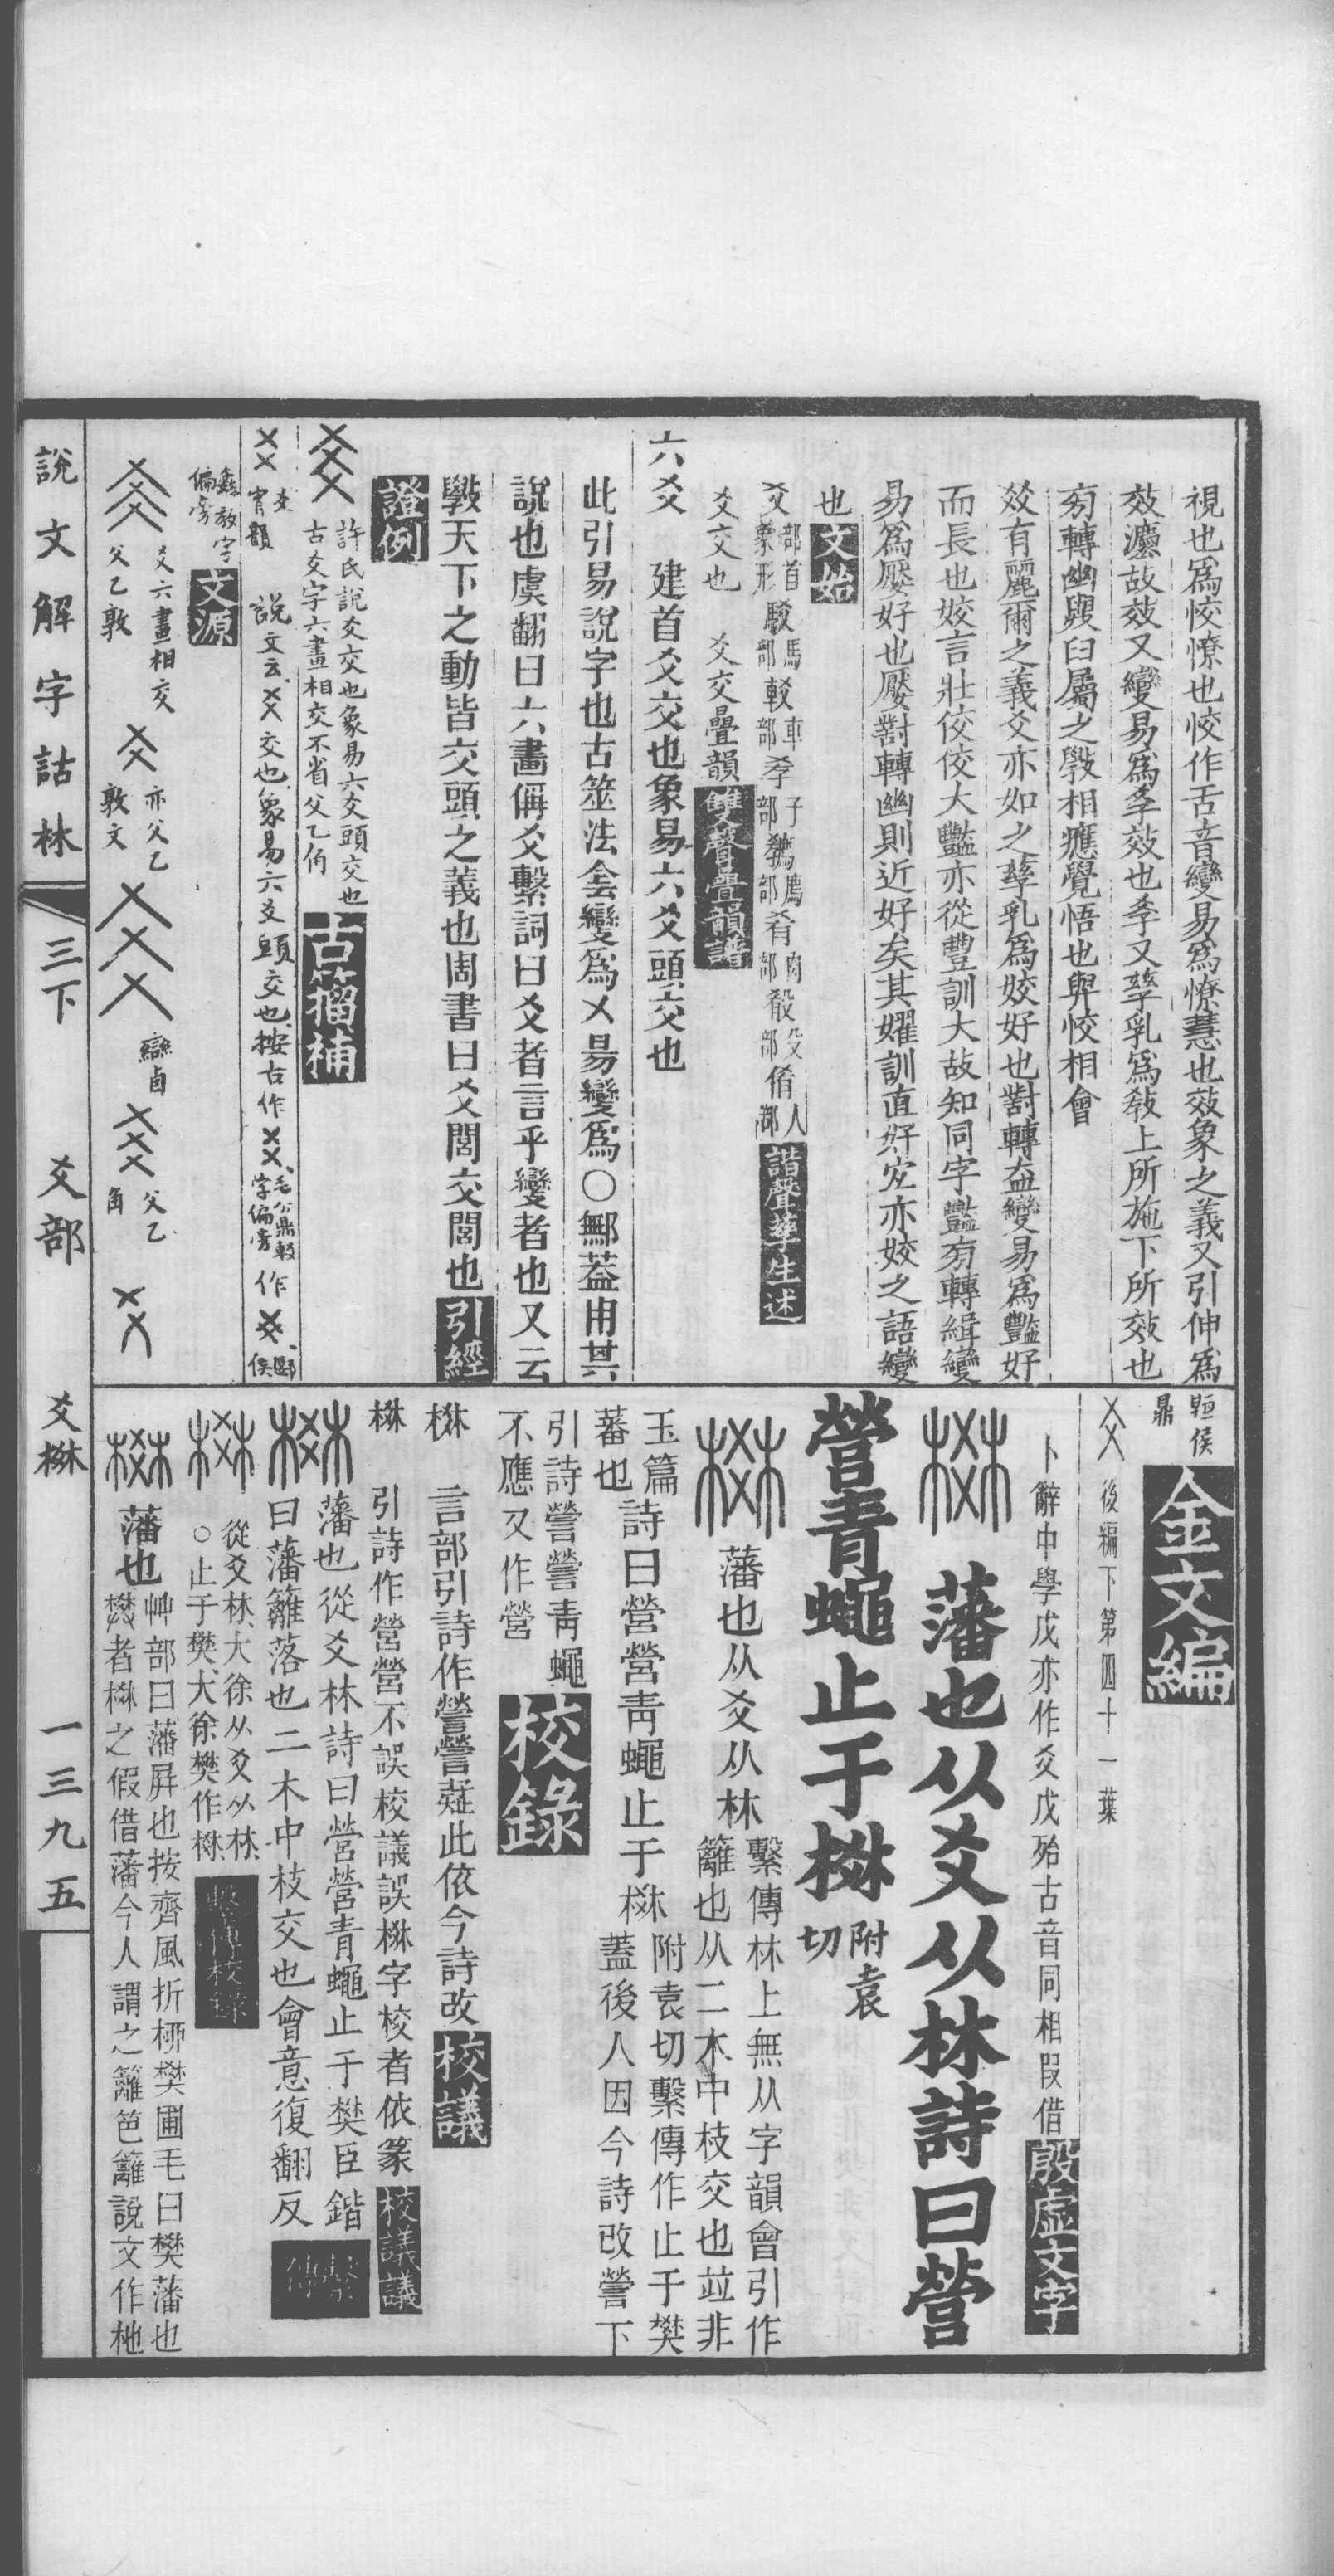 視也爲恔憭也恔作舌音變易爲憭慧也效象之義又引伸爲
效灋故效又變易爲孝效也孝又孳乳爲敎上所施下所效也
旁轉幽與臼屬之斆相應覺悟也與恔相會
㸚有麗爾之義爻亦如之孳乳爲姣好也對轉盍變易爲豔好
而長也姣言壯佼佼大豔亦從豐訓大故知同字豔旁轉緝變
易爲嬮好也嬮對轉幽則近好矣其嬥訓直好皃亦姣之語變
也 文始
爻部首象形 駁馬部 較車部 孝子部 鷔鳥部 肴肉部 殽殳部 倄人部 諧聲孳生述
爻交也 爻交疊韻 雙聲疊韻譜
六爻 建首爻交也象易六爻頭交也
此引易說字也古筮法侌變爲㐅昜變爲〇鄦葢用其
說也虞翻曰六畫偁爻繫詞曰爻者言乎變者也又云
斆天下之動皆交頭之義也周書曰爻閭交閭也 引經
證例
許氏說爻交也象易六爻頭交也
古爻字六畫相交不省父乙角 古籀補
爻 宵韻 說文云爻交也象易六爻頭交也按古作爻毛公鼎較字偏旁作爻郾侯
敦教字偏旁 文源
爻六畫相交父乙敦 亦父乙敦文 䜌卣 父乙角
䟒侯鼎 金文編
後編下第四十一葉
卜辭中學戊亦作爻戊殆古音同相叚借 殷虛文字
藩也从爻从林詩曰營
營青蠅止于棥 附袁切
藩也从爻从林 繫傳林上無从字韻會引作
籬也从二木中枝交也竝非
玉篇蕃也 詩曰營營靑蠅止于棥 附袁切繫傳作止于樊
蓋後人因今詩改營下
引詩營營靑蠅
不應又作營 校錄
棥 言部引詩作營營疑此依今詩改 校議
棥 引詩作營營不誤校議誤棥字校者依篆 校議議
藩也從爻林詩曰營營青蠅止于樊臣鍇
曰藩籬落也二木中枝交也會意復翻反 繫傳
從爻林大徐从爻从林
○止于樊大徐樊作棥 繫傳校錄
藩也 艸部曰藩屛也按齊風折桺樊圃毛曰樊藩也
樊者棥之假借藩今人謂之籬笆籬說文作杝
說文解字詁林 三下 爻部 爻棥 一三九五